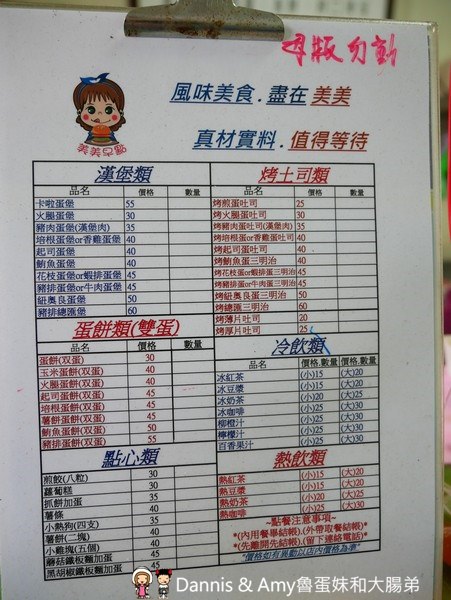 母版勿動
美美早點
風味美食.盡在 美美
真材實料.值得等待
漢堡類
品名 價格 數量
卡啦蛋堡 55
火腿蛋堡 30
豬肉蛋堡(漢堡肉) 35
培根蛋堡or香雞蛋堡 40
起司蛋堡 40
鮪魚蛋堡 40
花枝蛋堡or蝦排蛋堡 45
豬排蛋堡or牛肉蛋堡 45
紐奧良蛋堡 50
豬排總匯堡 60
烤土司類
品名 價格 數量
烤煎蛋吐司 25
烤火腿蛋吐司 30
烤豬肉蛋吐司(漢堡肉) 35
烤培根蛋or香雞蛋吐司 40
烤起司蛋吐司 40
烤鮪魚蛋三明治 40
烤花枝蛋or蝦排蛋三明治 45
烤豬排蛋or牛肉蛋三明治 45
烤紐奧良蛋三明治 50
烤總匯三明治 60
烤薄片吐司 20
烤厚片吐司 25
蛋餅類(雙蛋)
品名 價格 數量
蛋餅(双蛋) 30
玉米蛋餅(双蛋) 40
火腿蛋餅(双蛋) 40
起司蛋餅(双蛋) 45
培根蛋餅(双蛋) 45
薯餅蛋餅(双蛋) 45
鮪魚蛋餅(双蛋) 50
豬排蛋餅(双蛋) 55
冷飲類
品名 價格.數量 價格.數量
冰紅茶 (小)15 (大)20
冰豆漿 (小)15 (大)20
冰奶茶 (小)25 (大)30
冰咖啡 (小)25 (大)30
柳橙汁 (小)25 (大)30
檸檬汁 (小)25 (大)30
百香果汁 (小)25 (大)30
點心類
煎餃(八粒) 30
蘿蔔糕 30
抓餅加蛋 35
薯條 35
小熱狗(四支) 35
薯餅(二塊) 40
小雞塊(五個) 40
蘑菇鐵板麵加蛋 45
黑胡椒鐵板麵加蛋 45
熱飲類
熱紅茶 (小)15 (大)20
熱豆漿 (小)15 (大)20
熱奶茶 (小)20 (大)25
熱咖啡 (小)25 (大)30
~點餐注意事項~
*(內用餐畢結帳).(外帶取餐結帳)*
*(先離開先結帳).(留下連絡電話)*
*價格如有異動以店內價格為準*
Dannis & Amy魯蛋妹和大腸弟